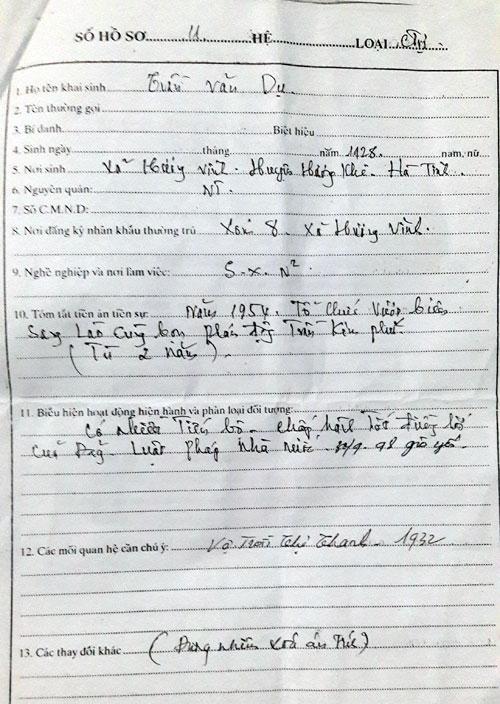 SỐ HỒ SƠ........ HỆ........ LOẠI.......
1. Họ tên khai sinh Trần Văn Dụ
2. Tên thường gọi
3. Bí danh Biệt hiệu
4. Sinh ngày tháng năm 1928 nam, nữ
5. Nơi sinh Xã Hương Vĩnh. Huyện Hương Khê. Hà Tĩnh.
6. Nguyên quán: NT.
7. Số C.M.N.D:
8. Nơi đăng ký nhân khẩu thường trú Xóm 8. Xã Hương Vĩnh.
9. Nghề nghiệp và nơi làm việc: S.x. N²
10. Tóm tắt tiền án tiền sự: Năm 1954. Tổ chức vượt biên
Sang Lào cùng bọn phản động Trần Kim
(Tù 2 năm).
11. Biểu hiện hoạt động hiện hành và phân loại đối tượng:
Có nhiều Tiến bộ. chấp hành Tốt đường lối
của Đảng. Luật Pháp Nhà nước
12. Các mối quan hệ cần chú ý: Vợ Trần Thị Thanh - 1932
13. Các thay đổi khác (Đương nhiên xoá án tích)